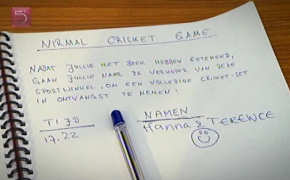 5
NIRMAL CRICKET GAME
NADAT JULLIE HET BOEK HEBBEN GETEKEND,
GAAN JULLIE NAAR DE VERKOPER VAN DEZE
SPORTWINKEL, OM EEN VOLLEDIGE CRICKET-SET
IN ONTVANGST TE NEMEN!
TIJD
17.22
NAMEN
Hanna & TERENCE